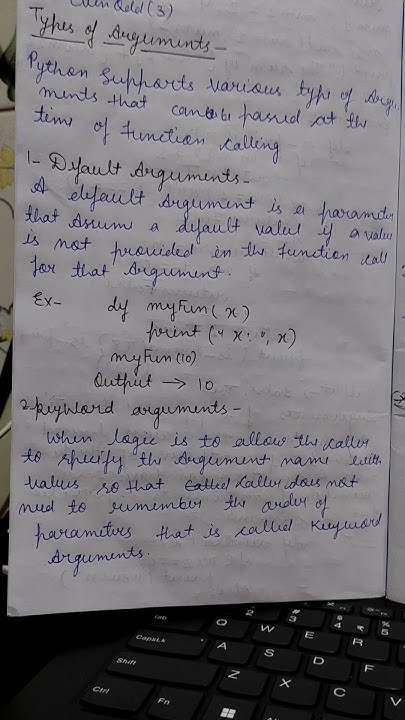 EvenOdd(3)
Types of Arguments -
Python Supports various type of Argu-
ments that can be passed at the
time of function calling
1- Default Arguments -
A default Argument is a parameter
that Assume a default value if a value
is not provided in the function call
for that Argument.
Ex- def myFun(x)
print ("X:", x)
myFun(10)
Output → 10
2. Keyword arguments -
When logic is to allow the caller
to specify the Argument name with
values so that Caller does not
need to remember the order of
parameters that is called Keyword
Arguments.
Tab Q W E R
CapsLk A S D F
Shift Z X C V
Ctrl Fn